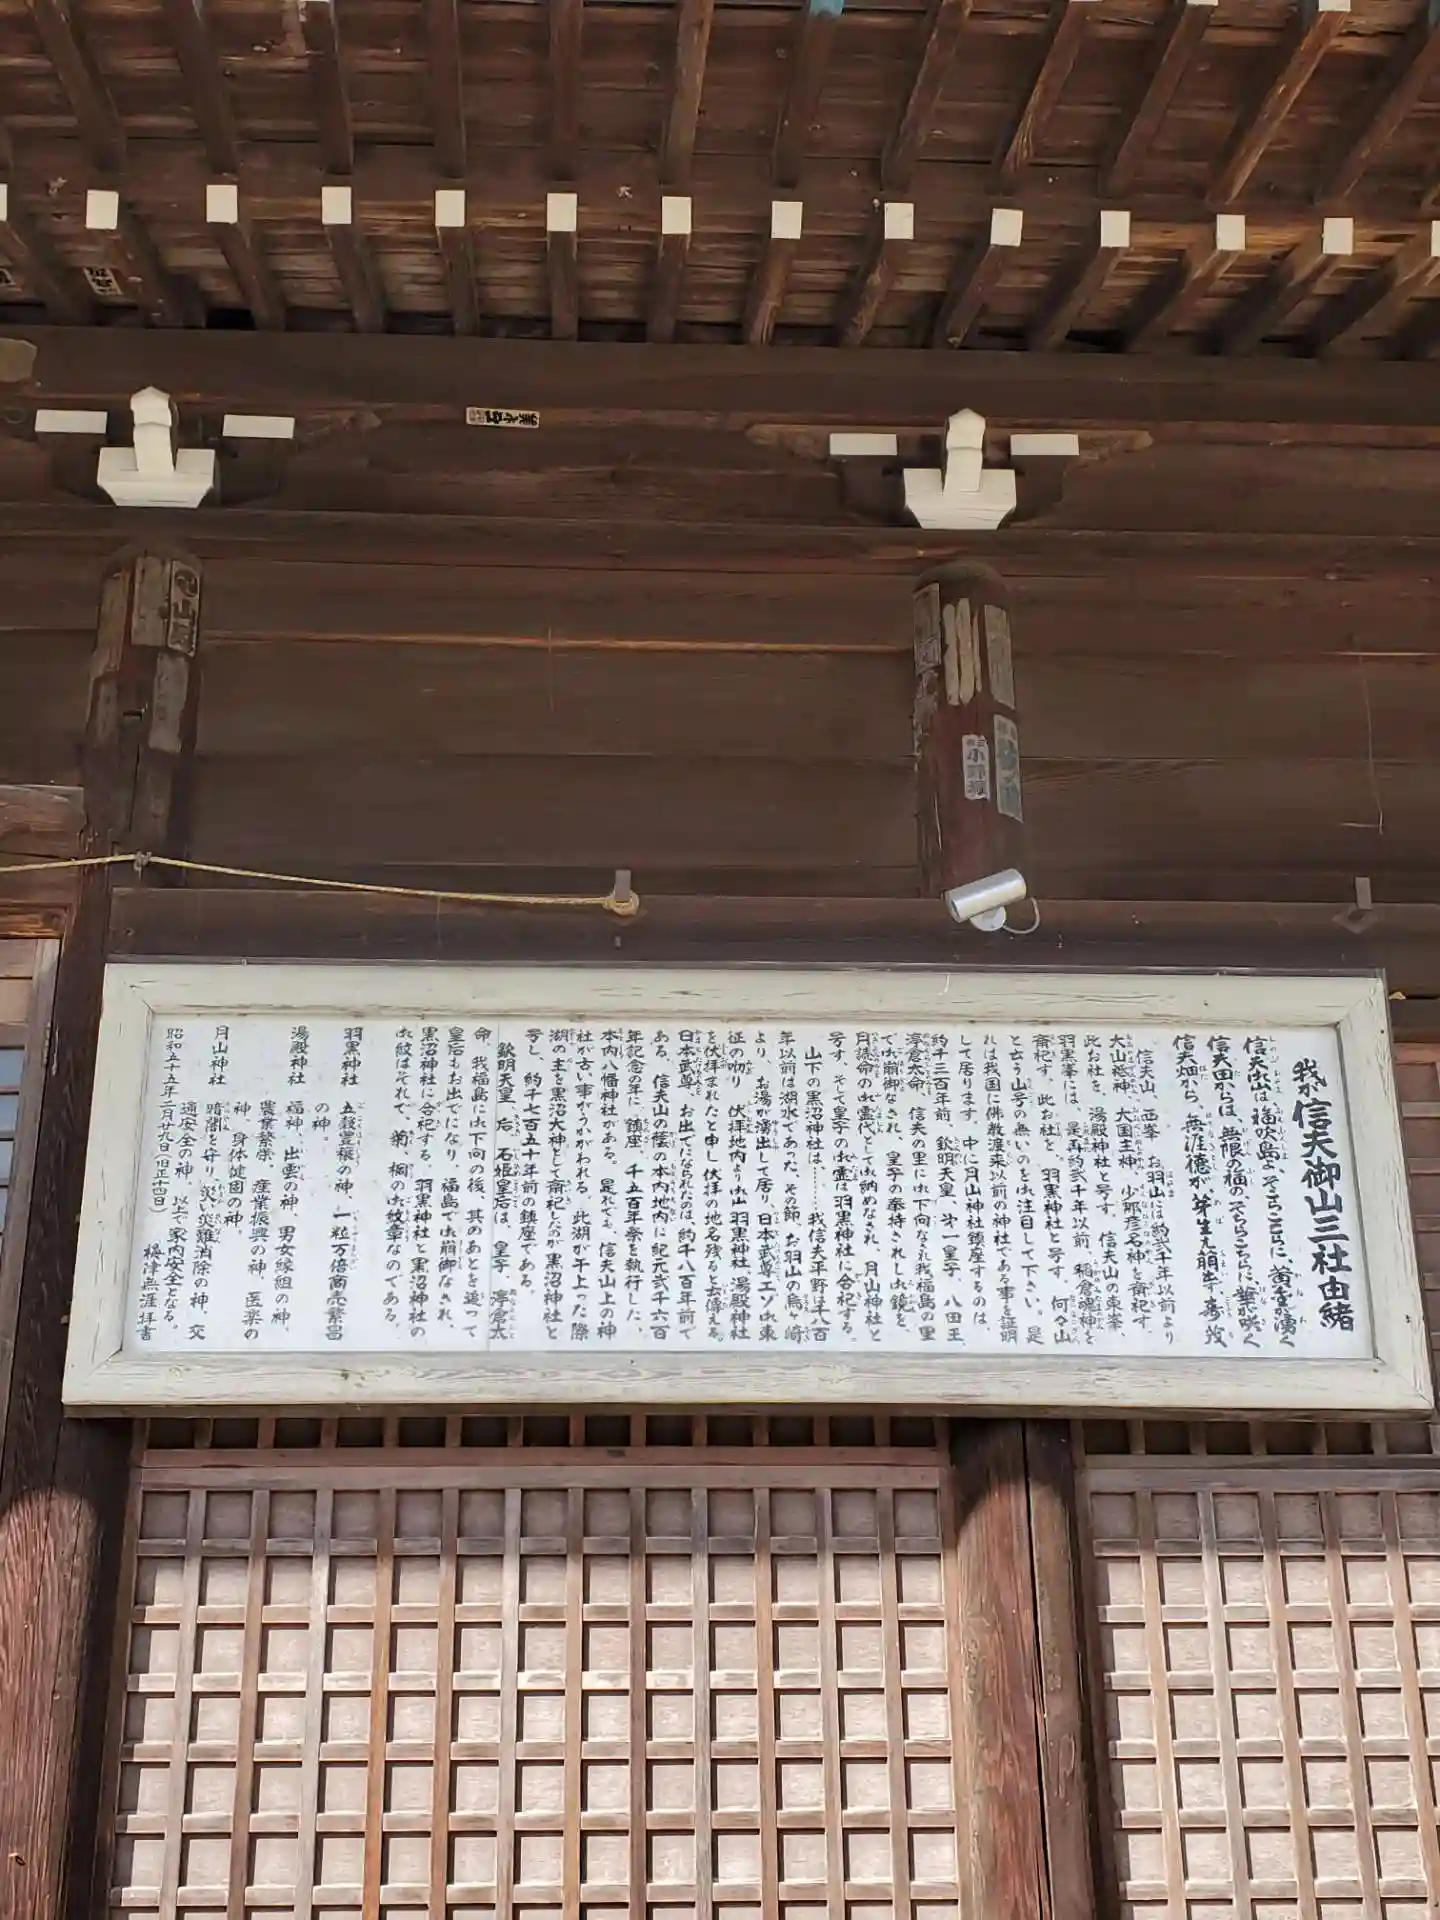 我が信夫御山三社由緒
信夫山は福吹島よ、そこらここらに、黄金が湧く
信夫田からは、無限の福の、そちらこちらに、華が咲く
信夫畑から、無涯億が芽生え萌出
信夫山、西峯、お羽山には約弐千年以前より
大山祗神、大国主神、少那彦名神を斎祀す。
此お社を、湯殿神社と号す。信夫山の東峯、
羽黒峯には、是再約弐千年以前、稲倉魂神を
斎祀す。此お社と、羽黒神社と号す。何々山
と云う山号の無いのを御注目して下さい。是
れは我国に佛教渡来以前の神社である事を証明
して居ります。中に月山神社鎮座するのは、
約千三百年前、欽明天皇、第一皇子、八田王、
渟倉太命、信夫の里に御下向なされ我福島の里
で御崩御なされ、皇子の奉持されし御鏡を、
月読命の御霊代として御納めなされ、月山神社と
号す。そして皇子の御霊は羽黒神社に合祀する。
山下の黒沼神社は……我信夫平野は千八百
年以前は湖水であった。その節、お羽山の烏ヶ崎
より、お湯が湧出して居り、日本武尊エゾ御東
征の砌り、伏拝地内より御山羽黒神社、湯殿神社
を伏拝まれたと申し伏拝の地名残ると云傳える。
日本武尊、お出でになられたのは、約千八百年前で
ある。信夫山の蔭の本内地内に紀元弐千六百
年記念の年に、鎮座、千五百年祭を執行した、
本内八幡神社がある。是れでも、信夫山上の神
社が古い事がうかがわれる。此湖が干上った際
湖の主を黒沼大神として斎祀したのが黒沼神社と
号し、約千七百五十年前の鎮座である。
欽明天皇、后、石姫皇后は、皇子、渟倉太
命、我福島に御下向の後、其のあとを追って
皇后もお出でになり、福島で御崩御なされ、
黒沼神社に合祀する。羽黒神社と黒沼神社の
御紋はそれで、菊、桐の御紋章なのである。
羽黒神社　五穀豊穣の神　一粒万倍商売繁昌
の神。
湯殿神社　福神、出雲の神、男女縁組の神、
農業繁栄、産業振興の神、医薬の
神、身体健固の神
月山神社　暗闇を守り、災い災難消除の神、交
通安全の神、以上で家内安全となる。
昭和五十五年二月廿九日（旧正十四日）
無涯拝書
小野塚